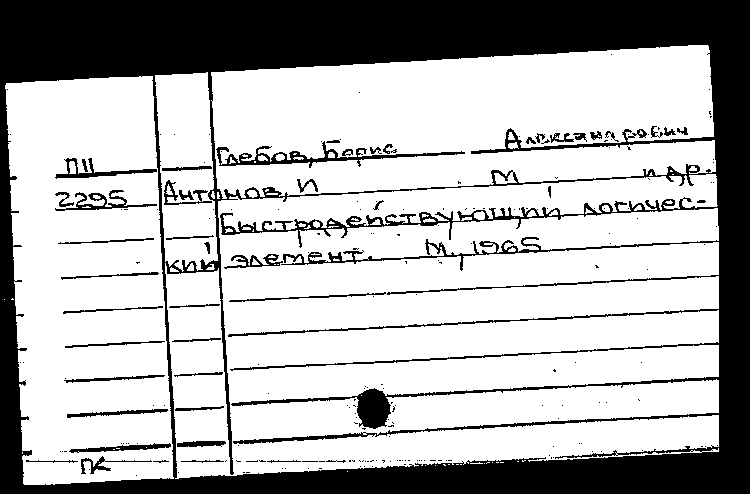 П11 Глебов, Борис Александрович
2295 Антонов, И М и др.
Быстродействующий логичес-
кий элемент. М., 1965
ПК